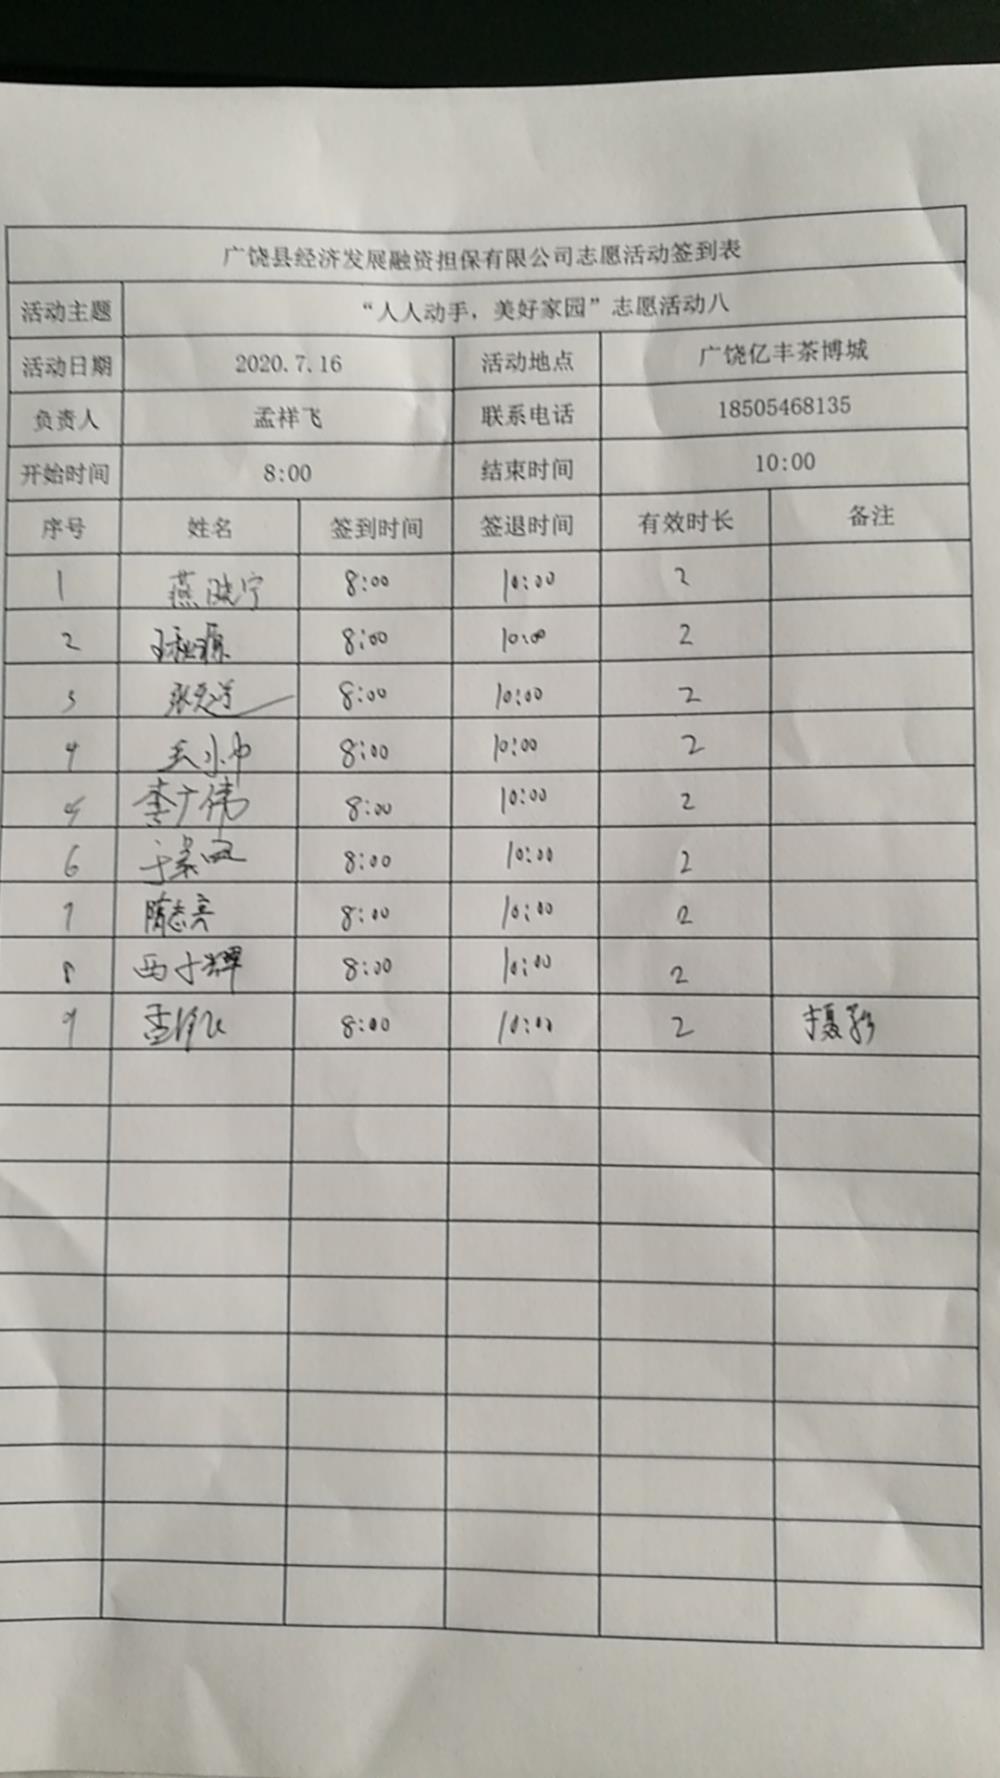 广饶县经济发展融资担保有限公司志愿活动签到表
活动主题 “人人动手，美好家园”志愿活动八
活动日期 2020.7.16 活动地点 广饶亿丰茶博城
负责人 孟祥飞 联系电话 18505468135
开始时间 8:00 结束时间 10:00
序号 姓名 签到时间 签退时间 有效时长 备注
1 燕晓宁 8:00 10:00 2
2 8:00 10:00 2
3 8:00 10:00 2
4 王小中 8:00 10:00 2
5 李广伟 8:00 10:00 2
6 8:00 10:00 2
7 隋志亮 8:00 10:00 2
8 西子辉 8:00 10:00 2
9 孟祥飞 8:00 10:00 2 摄影